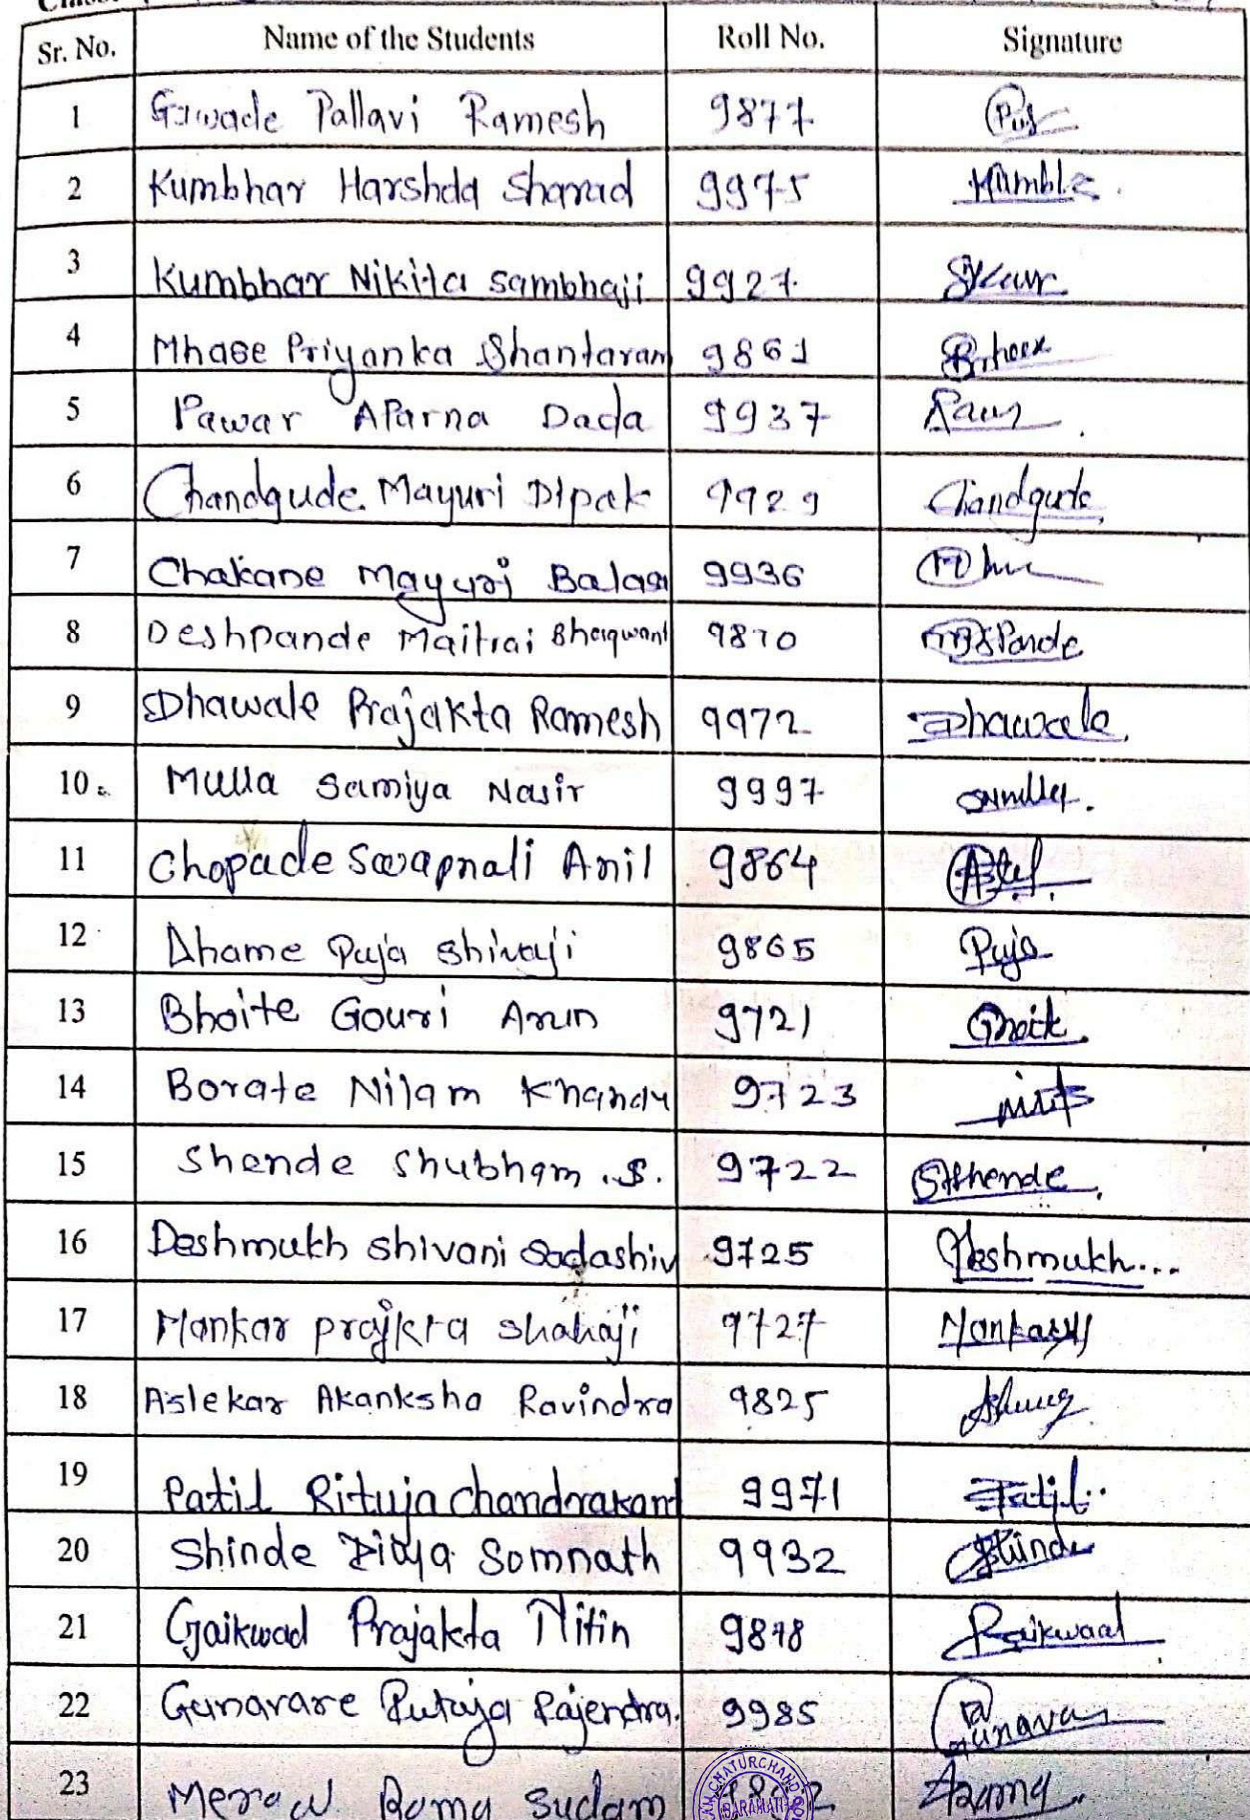 Sr. No. Name of the Students Roll No. Signature
1 Gawade Pallavi Ramesh 9877
2 Kumbhar Harshda Sharad 9975
3 Kumbhar Nikita Sambhaji 9927
4 Mhase Priyanka Shantaram 9861
5 Pawar Aparna Dada 9937
6 Chandgude. Mayuri Dipak 9929 Chandgude
7 Chakane Mayuri Balaso 9936
8 Deshpande Maitrai Bhagwant 9870
9 Dhawale Prajakta Ramesh 9972 Dhawale
10 Mulla Samiya Nasir 9997
11 Chopade Swapnali Anil 9864
12 Dhame Puja Shivaji 9865 Puja
13 Bhoite Gouri Arun 9721
14 Borate Nilam Khandu 9723
15 Shende Shubham .S. 9722 SShende
16 Deshmukh Shivani Sadashiv 9725 Deshmukh...
17 Mankar prajkta shahaji 9727
18 Aslekar Akanksha Ravindra 9825
19 Patil Rituja Chandrakant 9971 Patil..
20 Shinde Somnath 9932 Shinde
21 Gaikwad Prajakta Nitin 9878 Gaikwad
22 Gunavare Rutuja Rajendra. 9985
23 Sudam
TULJARAM CHATURCHAND
BARAMATI